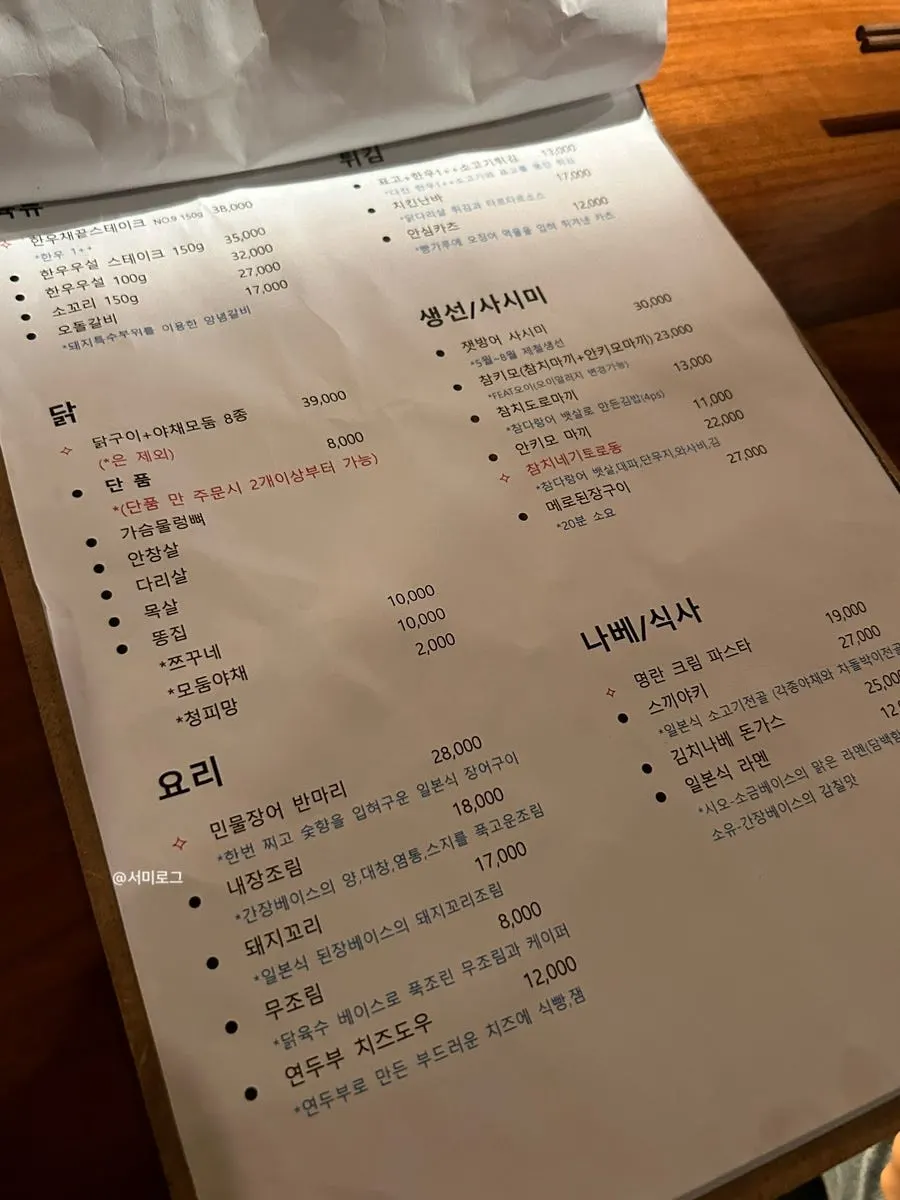 한우채끝스테이크 NO.9 150g 38,000
*한우 1++
한우우설 스테이크 150g 35,000
한우우설 100g 32,000
소꼬리 150g 27,000
오돌갈비 17,000
*돼지특수부위를 이용한 양념갈비
닭
닭구이+야채모둠 8종 39,000
(*은 제외)
단 품 8,000
*(단품 만 주문시 2개이상부터 가능)
가슴물렁뼈
안창살
다리살
목살
똥집
*쯔꾸네 10,000
*모둠야채 10,000
*청피망 2,000
요리
민물장어 반마리 28,000
*한번 찌고 숯향을 입혀구운 일본식 장어구이
내장조림 18,000
*간장베이스의 양,대창,염통,스지를 푹고운조림
돼지꼬리 17,000
*일본식 된장베이스의 돼지꼬리조림
무조림 8,000
*닭육수 베이스로 푹조린 무조림과 케이퍼
연두부 치즈도우 12,000
*연두부로 만든 부드러운 치즈에 식빵,잼
튀김
표고+한우1++소고기튀김 13,000
*다진 한우1++소고기와 표고를 튀김
치킨난바 17,000
*닭다리살 튀김과 타르타르소스
안심카츠 12,000
*빵가루에 오징어 먹물을 입혀 튀겨낸 카츠
생선/사시미
잿방어 사시미 30,000
*5월~8월 제철생선
참키모(참치마끼+안키모마끼) 23,000
*FEAT오이(오이알러지 변경가능)
참치도로마끼 13,000
*참다랑어 뱃살로 만든김밥(4ps)
안키모 마끼 11,000
참치네기토로동 22,000
*참다랑어 뱃살,대파,단무지,와사비,김
메로된장구이 27,000
*20분 소요
나베/식사
명란 크림 파스타 19,000
스끼야키 27,000
*일본식 소고기전골 (각종야채와 차돌박이전골
김치나베 돈가스 25,000
일본식 라멘
*시오-소금베이스의 맑은 라멘(담백함
소유-간장베이스의 감칠맛
@서미로그